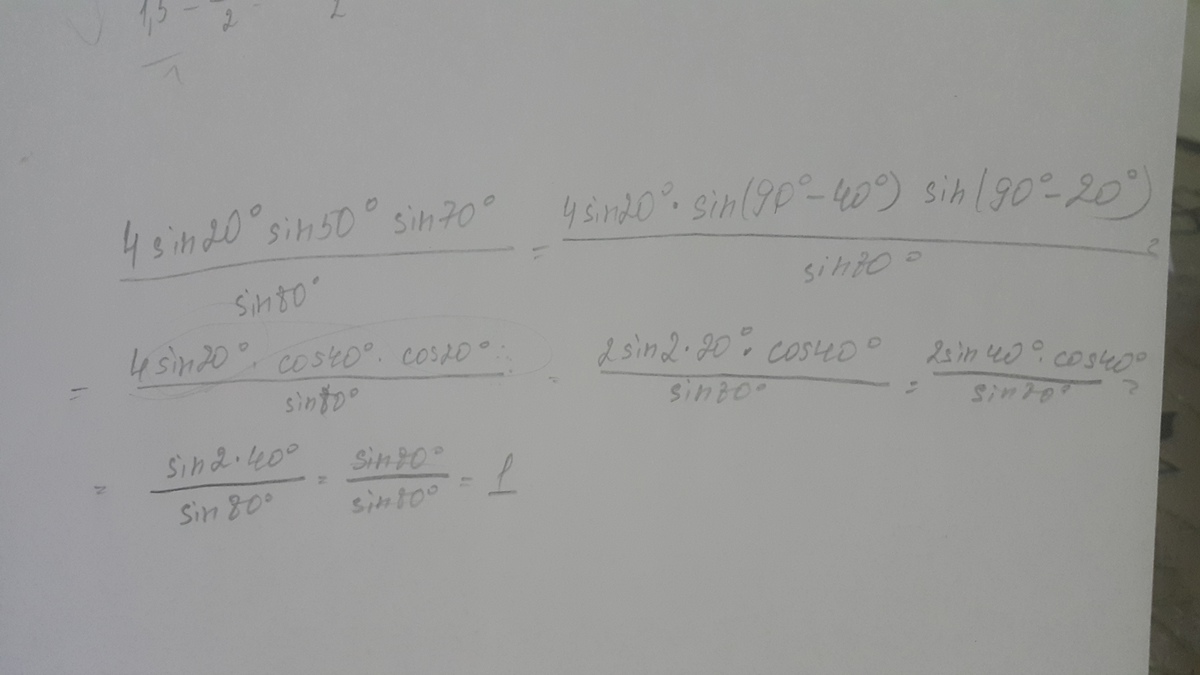 1,5 - /2 - 2
4 sin20° sin50° sin70° / sin80° = 4sin20° · sin(90°-40°) sin(90°-20°) / sin80° =
= 4sin20° · cos40° · cos20° / sin80° = 2sin2·20° · cos40° / sin80° = 2sin40° · cos40° / sin80° =
= sin2·40° / sin80° = sin80° / sin80° = 1